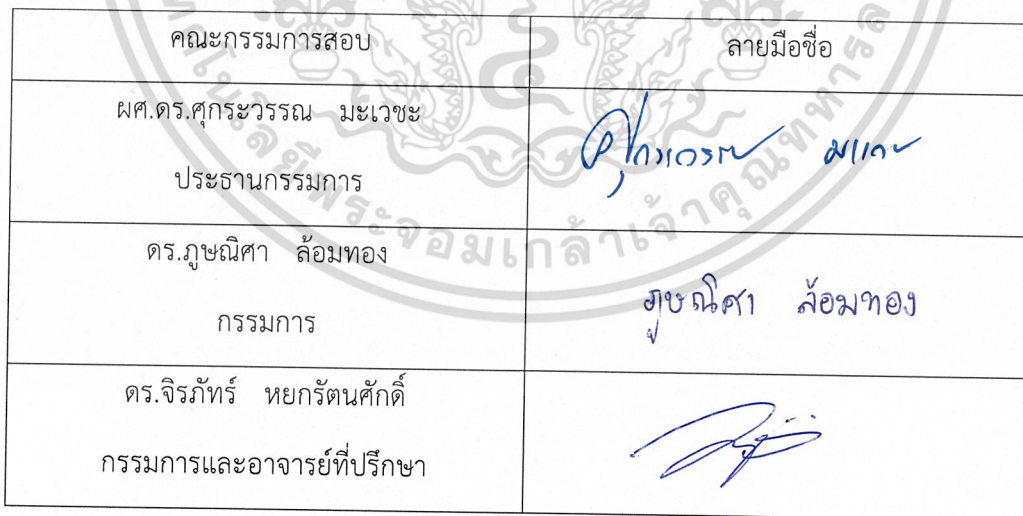 คณะกรรมการสอบ ลายมือชื่อ
ผศ.ดร.ศุกระวรรณ มะเวชะ
ประธานกรรมการ
ศุกระวรรณ มะเวชะ
ดร.ภูษณิศา ล้อมทอง
กรรมการ
ภูษณิศา ล้อมทอง
ดร.จิรภัทร์ หยกรัตนศักดิ์
กรรมการและอาจารย์ที่ปรึกษา
พระจอมเกล้าเจ้าคุณทหาร